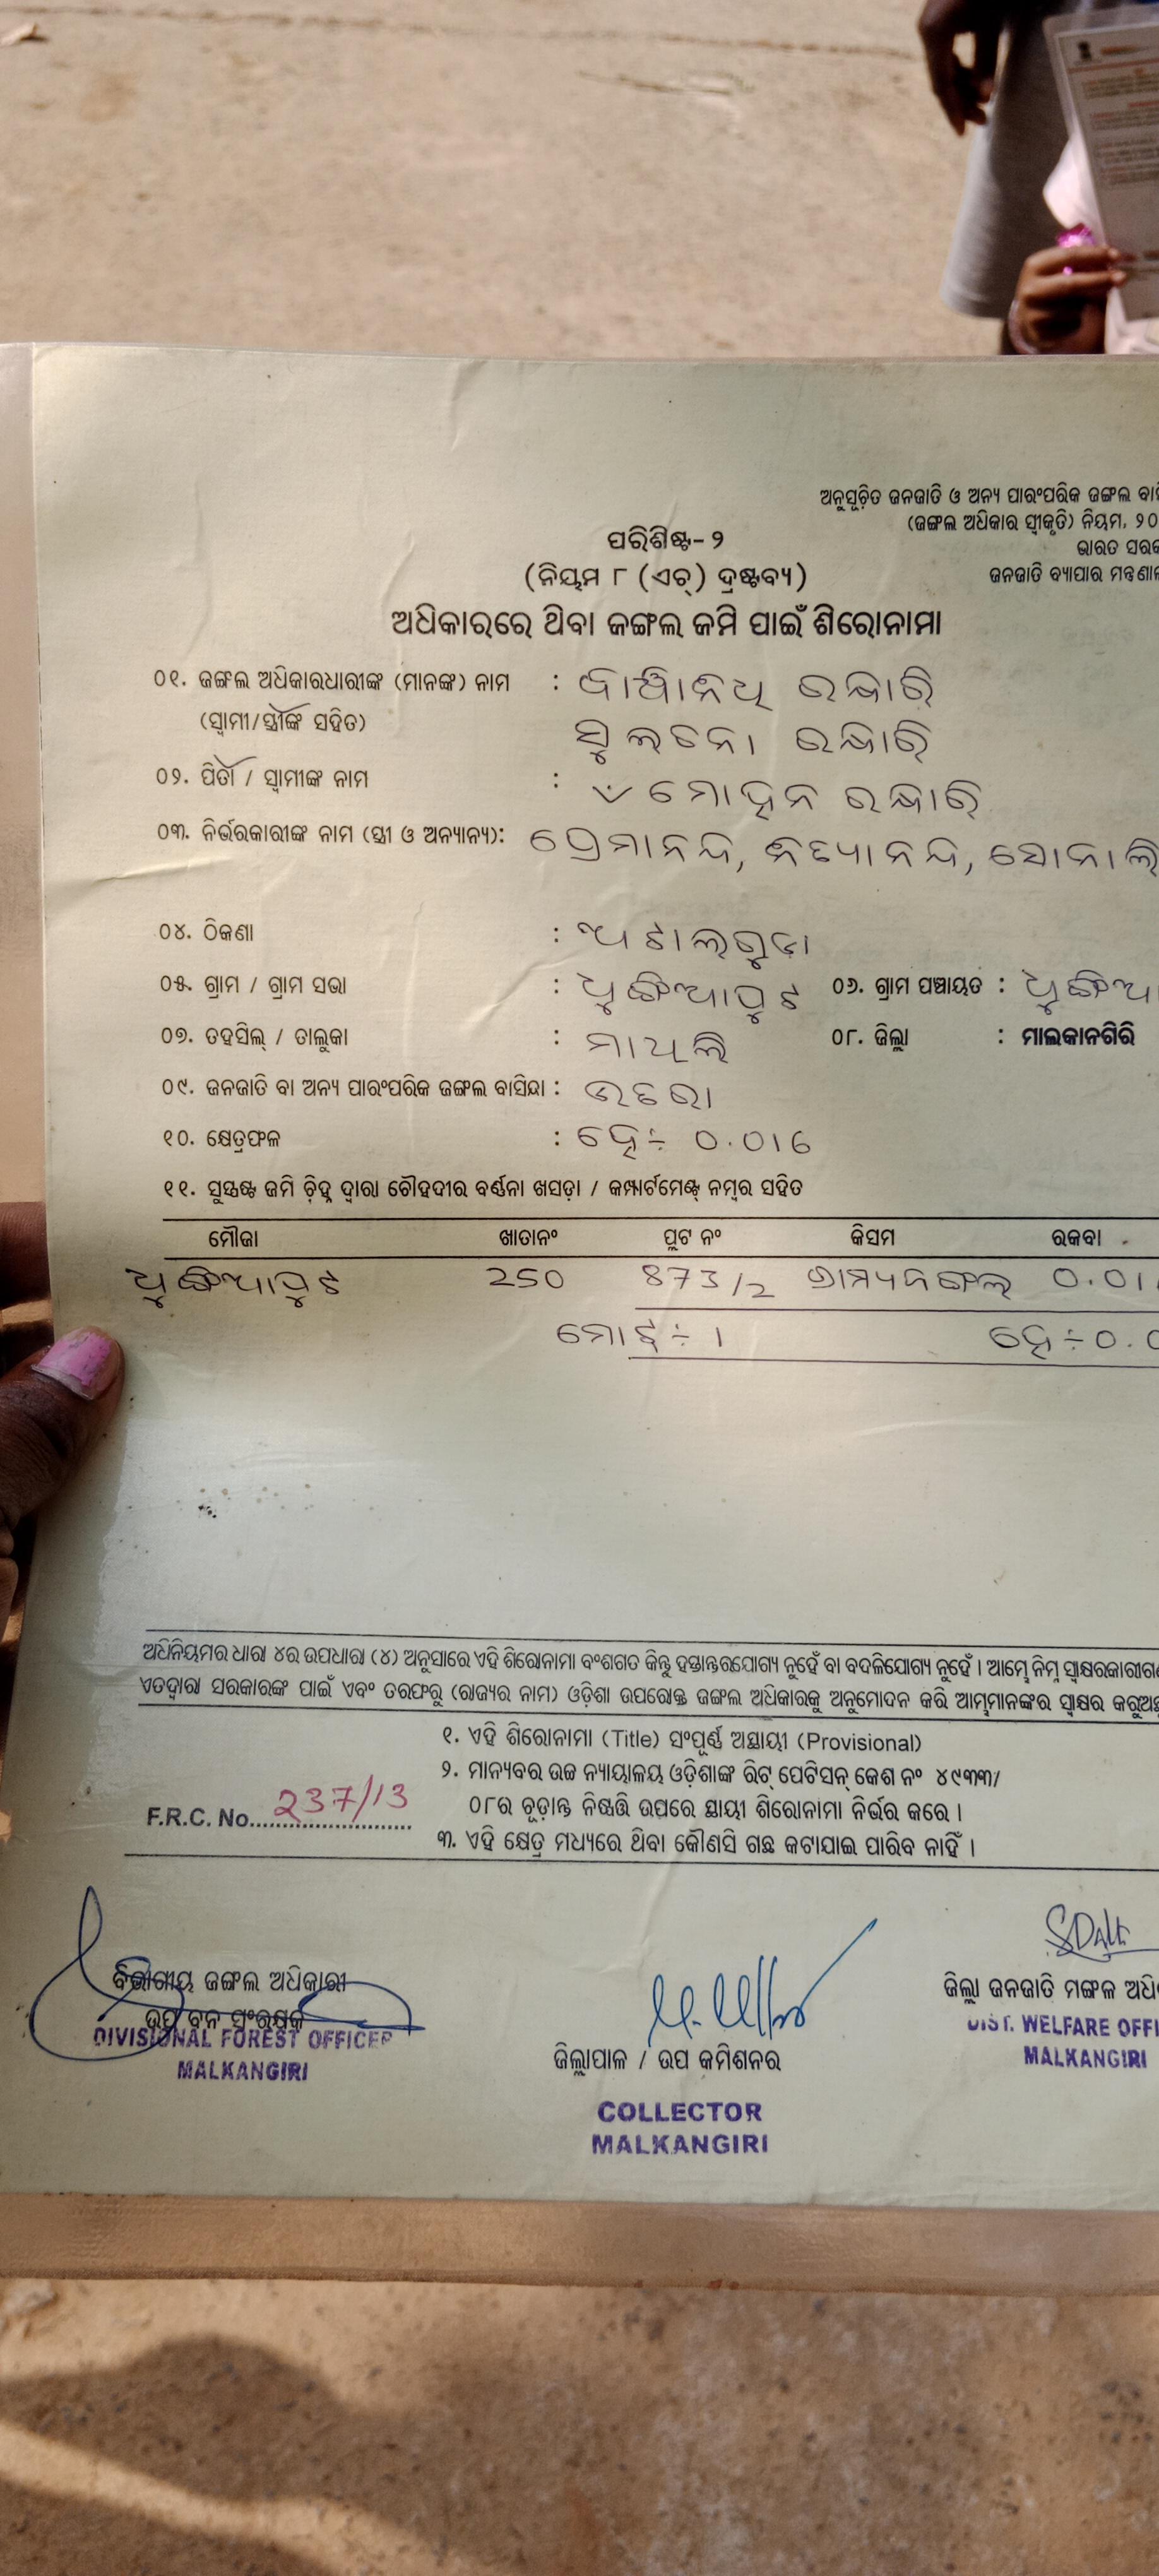 ଅନୁସୂଚିତ ଜନଜାତି ଓ ଅନ୍ୟ ପାରଂପରିକ ଜଙ୍ଗଲ
(ଜଙ୍ଗଲ ଅଧିକାର ସ୍ୱୀକୃତି) ନିୟମ, ୨୦
ଭାରତ
ଜନଜାତି ବ୍ୟାପାର
ପରିଶିଷ୍ଟ- ୨
(ନିୟମ ୮ (ଏଚ୍) ଦ୍ରଷ୍ଟବ୍ୟ)
ଅଧିକାରରେ ଥିବା ଜଙ୍ଗଲ ଜମି ପାଇଁ ଶିରୋନାମା
୦୧. ଜଙ୍ଗଲ ଅଧିକାରଧାରୀଙ୍କ (ମାନଙ୍କ) ନାମ :
(ସ୍ୱାମୀ/ସ୍ତ୍ରୀଙ୍କ ସହିତ)
୦୨. ପିତା / ସ୍ୱାମୀଙ୍କ ନାମ : ମୋହନ
୦୩. ନିର୍ଭରକାରୀଙ୍କ ନାମ (ସ୍ତ୍ରୀ ଓ ଅନ୍ୟାନ୍ୟ): ପ୍ରେମାନନ୍ଦ, ନିତ୍ୟାନନ୍ଦ, ସୋନାଲି
୦୪. ଠିକଣା : ଅଟାଲଗୁଡା
୦୫. ଗ୍ରାମ / ଗ୍ରାମ ସଭା : ୦୬. ଗ୍ରାମ ପଞ୍ଚାୟତ :
୦୭. ତହସିଲ୍ / ତାଲୁକା : ମାଥିଲି ୦୮. ଜିଲ୍ଲା : ମାଲକାନଗିରି
୦୯. ଜନଜାତି ବା ଅନ୍ୟ ପାରଂପରିକ ଜଙ୍ଗଲ ବାସିନ୍ଦା :
୧୦. କ୍ଷେତ୍ରଫଳ : ହେ÷ 0.016
୧୧. ସୁସ୍ପଷ୍ଟ ଜମି ଚିହ୍ନ ଦ୍ୱାରା ଚୌହଦୀର ବର୍ଣ୍ଣନା ଖସଡ଼ା / କମ୍ପାର୍ଟମେଣ୍ଟ୍ ନମ୍ବର ସହିତ
ମୌଜା ଖାତାନଂ ପ୍ଲଟ ନଂ କିସମ ରକବା
250 873/2 ଗ୍ରାମ୍ୟଜଙ୍ଗଲ 0.01
ମୋଟ÷ 1 ହେ÷0.0
ଅଧିନିୟମର ଧାରା ୪ର ଉପଧାରା (୪) ଅନୁସାରେ ଏହି ଶିରୋନାମା ବଂଶଗତ କିନ୍ତୁ ହସ୍ତାନ୍ତରଯୋଗ୍ୟ ନୁହେଁ ବା ବଦଳିଯୋଗ୍ୟ ନୁହେଁ । ଆମ୍ଭେ ନିମ୍ନ
ଏତଦ୍ୱାରା ସରକାରଙ୍କ ପାଇଁ ଏବଂ ତରଫରୁ (ରାଜ୍ୟର ନାମ) ଓଡ଼ିଶା ଉପରୋକ୍ତ ଜଙ୍ଗଲ ଅଧିକାରକୁ ଅନୁମୋଦନ କରି ଆମ୍ଭମାନଙ୍କର ସ୍ୱାକ୍ଷର
୧. ଏହି ଶିରୋନାମା (Title) ସଂପୂର୍ଣ୍ଣ ଅସ୍ଥାୟୀ (Provisional)
୨. ମାନ୍ୟବର ଉଚ୍ଚ ନ୍ୟାୟାଳୟ ଓଡ଼ିଶାଙ୍କ ରିଟ୍ ପେଟିସନ୍ କେଶ ନଂ ୪୯୩୩/
୦୮ର ଚୂଡ଼ାନ୍ତ ନିଷ୍ପତ୍ତି ଉପରେ ସ୍ଥାୟୀ ଶିରୋନାମା ନିର୍ଭର କରେ ।
F.R.C. No. 237/13
୩. ଏହି କ୍ଷେତ୍ର ମଧ୍ୟରେ ଥିବା କୌଣସି ଗଛ କଟାଯାଇ ପାରିବ ନାହିଁ ।
ବିଭାଗୀୟ ଜଙ୍ଗଲ ଅଧିକାରୀ
ଉପ ବନ ସଂରକ୍ଷକ
DIVISIONAL FOREST OFFICER
MALKANGIRI
ଜିଲ୍ଲାପାଳ / ଉପ କମିଶନର
COLLECTOR
MALKANGIRI
ଜିଲ୍ଲା ଜନଜାତି ମଙ୍ଗଳ
DIST. WELFARE
MALKANGIRI